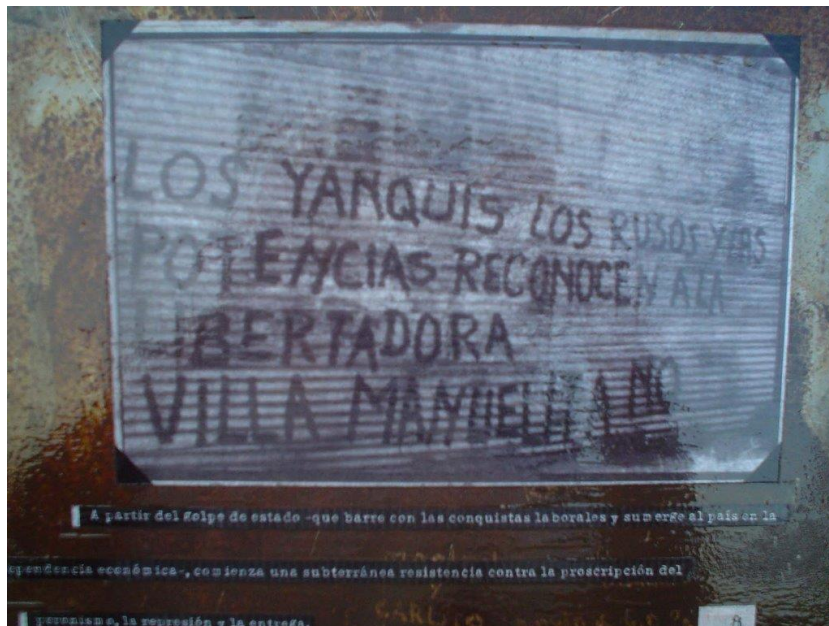 LOS YANQUIS LOS RUSOS Y LAS
POTENCIAS RECONOCEN A LA
LIBERTADORA
VILLA MANUELITA NO
A partir del golpe de estado -que barre con las conquistas laborales y sumerge al país en la
ependencia económica-, comienza una subterránea resistencia contra la proscripción del
peronismo, la represión y la entrega.